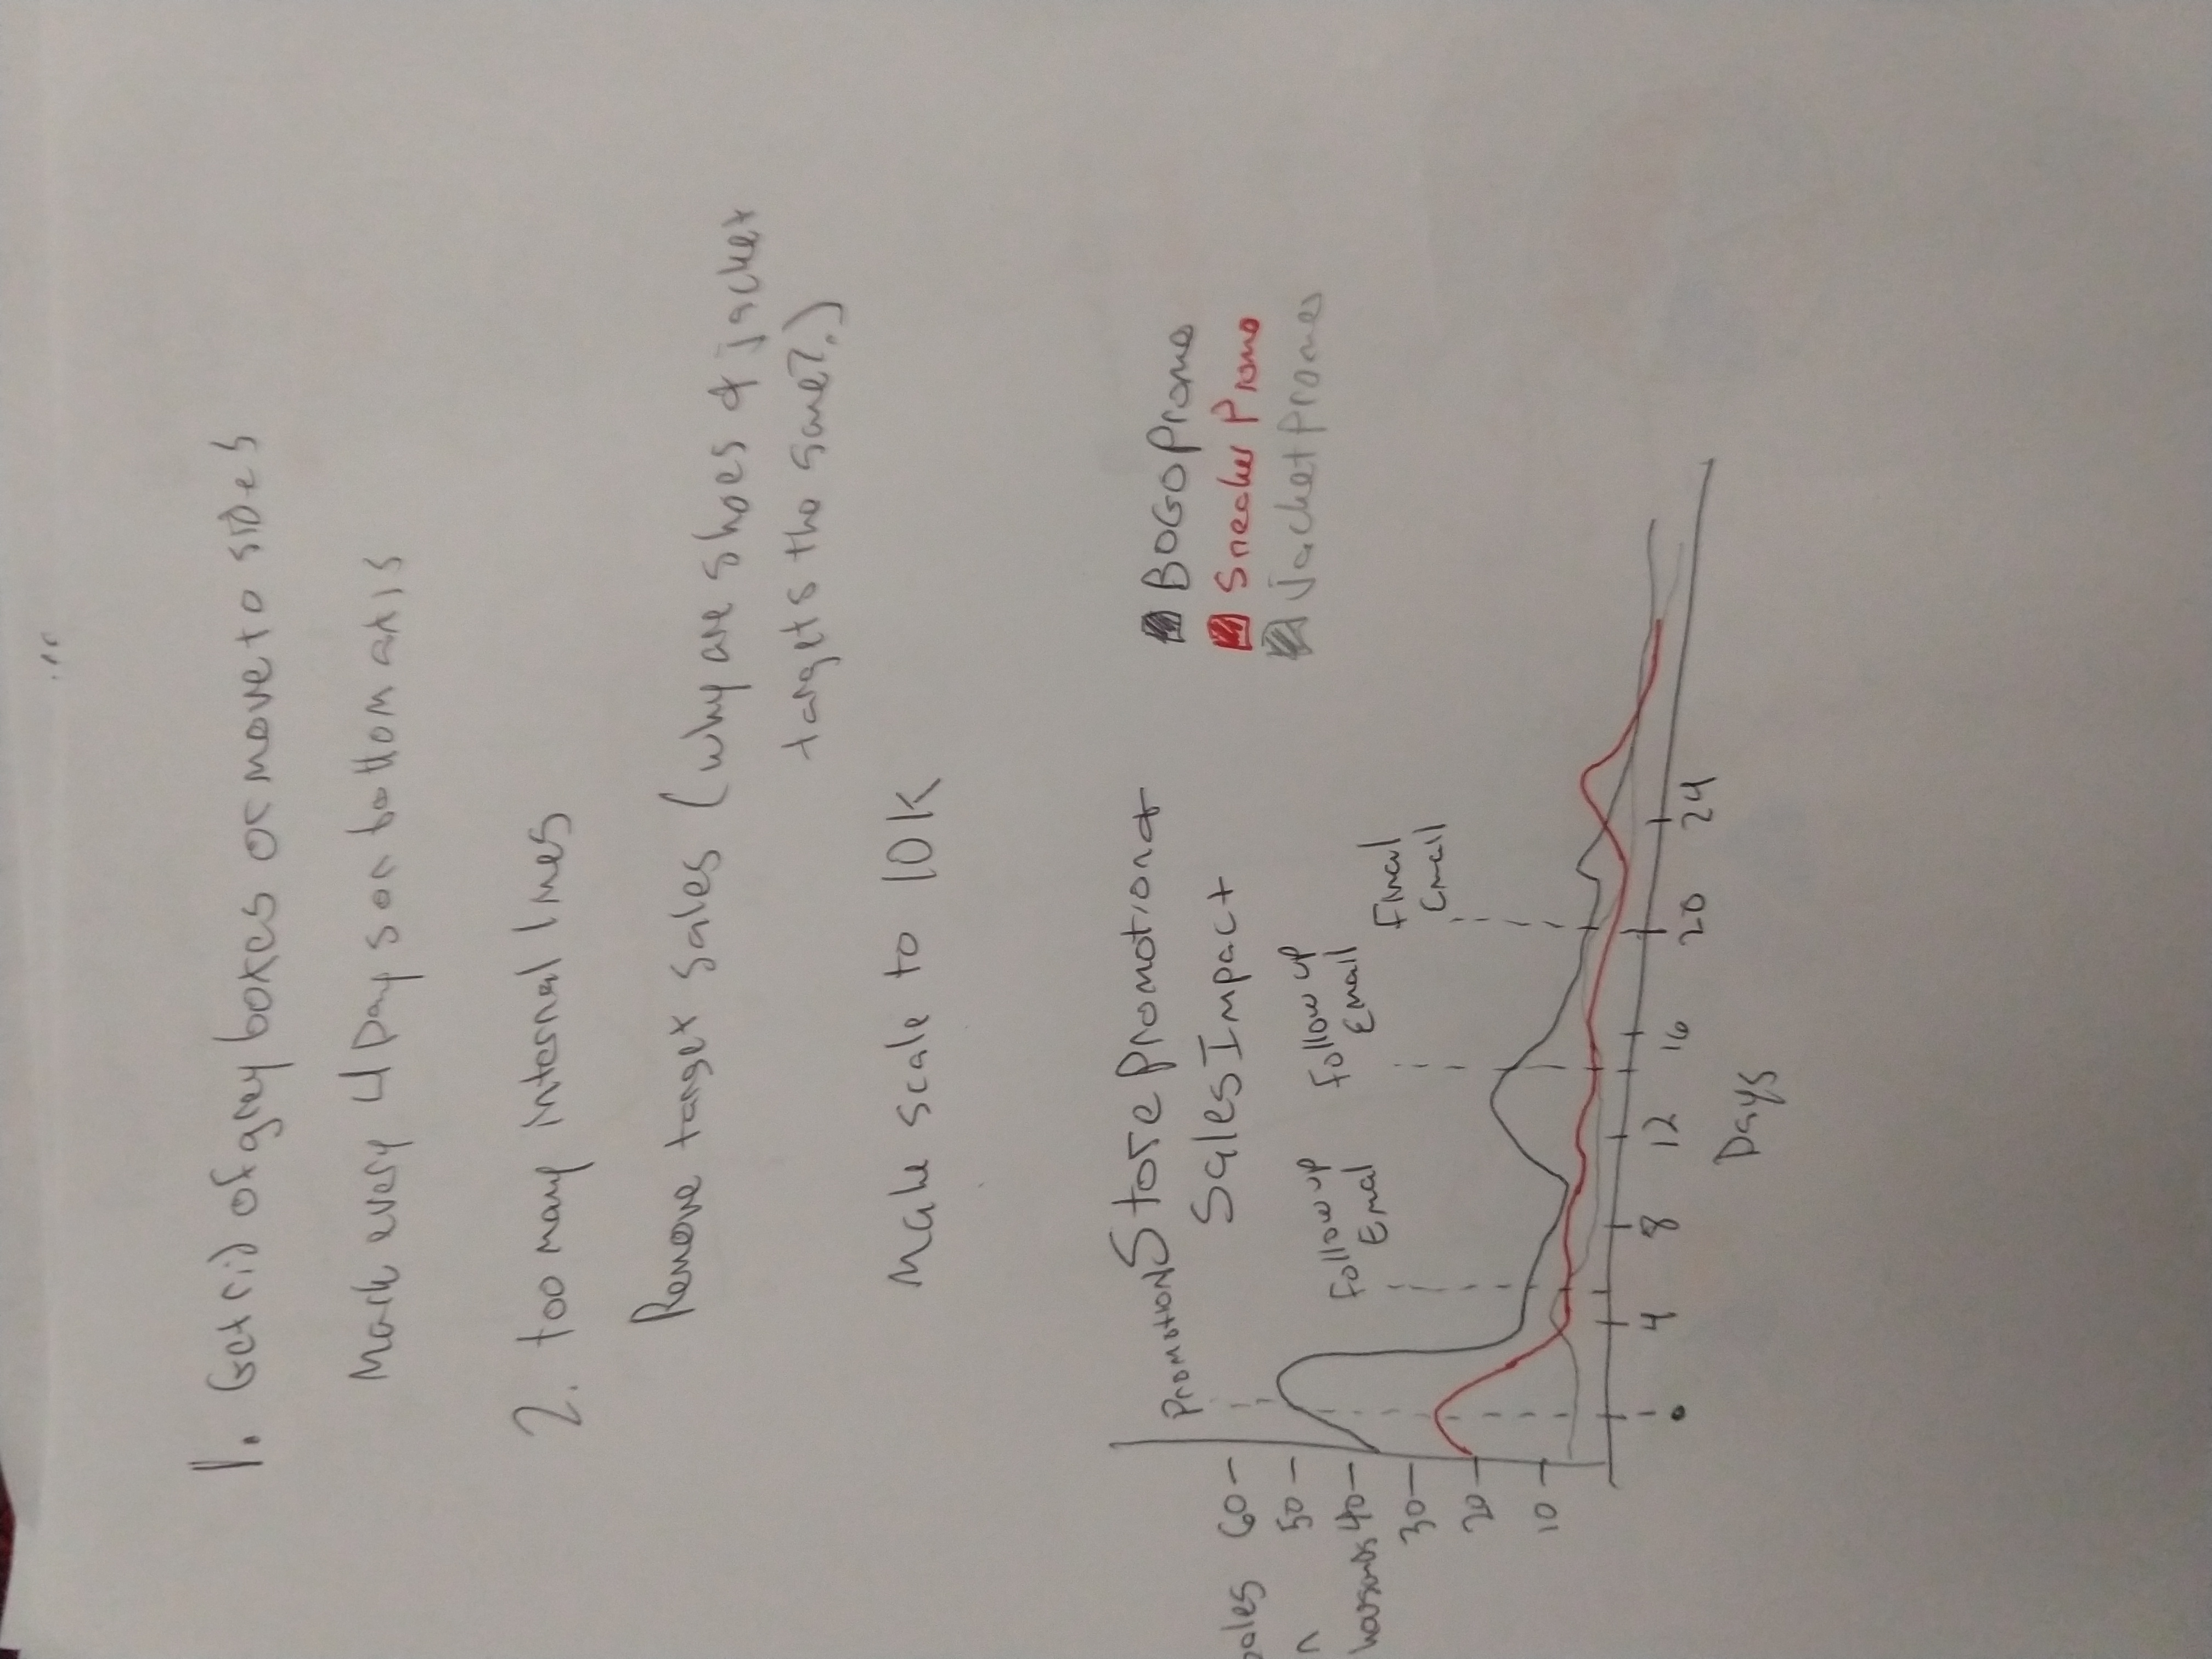 1. Get rid of grey boxes or move to sides
Mark every 4 Days on bottom axis
2. too many internal lines
Remove target sales (why are shoes & jacket
targets the same?.)
Make scale to 10K
Promotion Store Promotion &
Sales Impact
BOGO Promo
Sneaker Promo
Jacket Promo
ales 60
n 50
housands 40
30
20
10
Follow up
Emal
Follow up
Email
Final
Email
0 4 8 12 16 20 24
Days